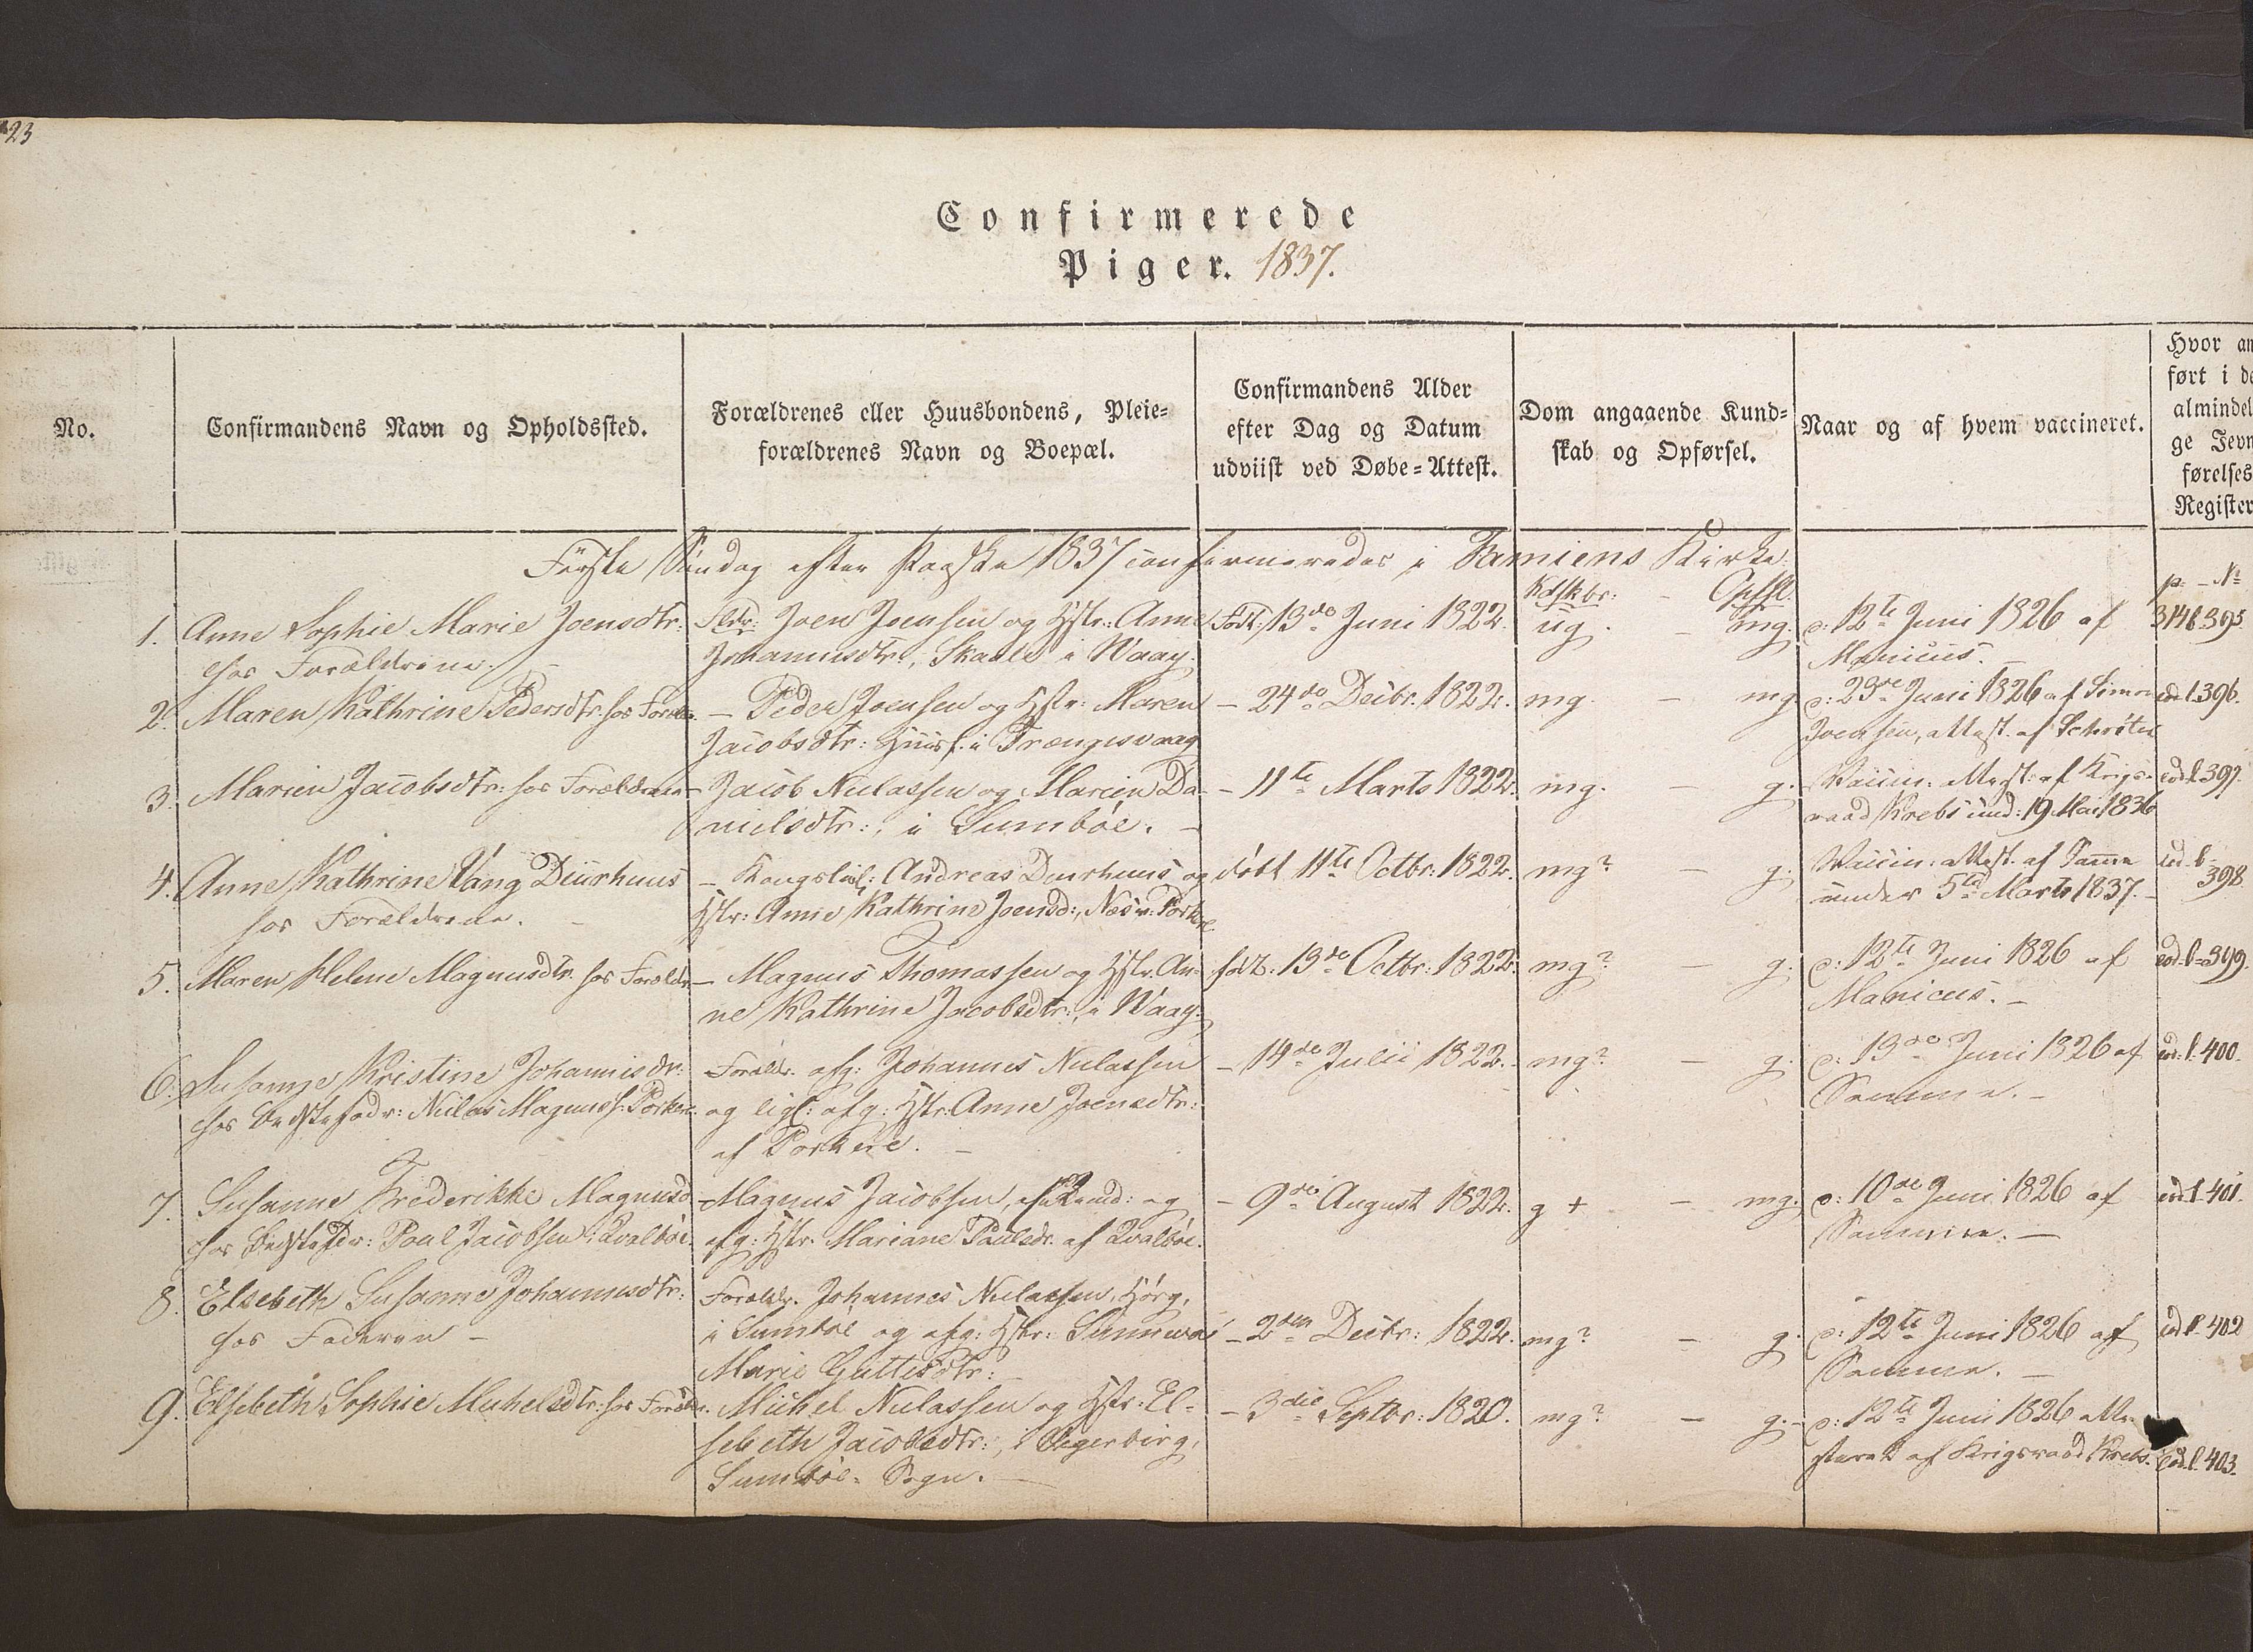 23
Confirmerede
Piger. 1837.
No.
Confirmandens Navn og Opholdssted.
Forældrenes eller Huusbondens, Pleie-
forældrenes Navn og Boepæl.
Confirmandens Alder
efter Dag og Datum
udviist ved Døbe-Attest.
Dom angaaende Kund-
skab og Opførsel.
Naar og af hvem vaccineret.
Hvor an
ført i de
almindel
ge Jevn
førelses
Register
Første Søndag efter Paaske 1837 confirmeredes i Famiens Kirke:
Kdskbr: - Opfsl.
p. - No
1. Anne Sophie Marie Joensdtr:
hos Forældrene. -
Fldr: Joen Joensen og Hstr: Anne
Johannesdtr:, Skaale i Waag.
Født: 13de Juni 1822.
ug. - mg.
d: 12te Juni 1826 af
Manicus.
314 l. 395.
2. Maren Kathrine Pedersdtr: hos Forældr.
- Peder Joensen og Hstr: Maren
Jacobsdtr: Huusf. i Trangisvaag
- 24de Decbr. 1822.
mg. - mg.
d: 23de Juni 1826 af Simon
Joensen, attest. af Schrøter
eod. l. 396.
3. Marien Jacobsdtr: hos Forældrene
- Jacob Niclassen og Marien Da-
nielsdtr:, i Sumbøe. -
- 11te Marts 1822.
mg. - g.
Vaccin: Attest: af Krigs-
raad Krebs und: 19 Mai 1836
eod. l. 397.
4. Anne Kathrine Vang Diurhuus
hos Forældrene. -
- Kongs Andreas Diurhuus og
Hstr: Anne Kathrine Joensd:, Næs v: Porkere
døbt 11te Octbr: 1822.
mg? - g.
Vaccin: attest. af Samme
under 5te Marts 1837. -
eod. l. 398.
5. Maren Helene Magnusdtr. hos Forældr.
- Magnus Thomassen og Hstr. An-
ne Kathrine Jacobsdtr:, i Waag.
født: 13de Octbr: 1822.
mg? - g.
d: 12te Juni 1826 af
Manicus. -
eod. l. 399.
6. Susanne Kristine Johannisdr:
hos Bedstefadr: Niclas Magnuss. Porkere.
Forældr. afg: Johannes Niclassen
og ligl: afg: Hstr: Anne Joensdtr:
af Porkere. -
- 14de Julii 1822. -
mg? - g.
d: 13de Juni 1826 af
Samme. -
eod. l. 400.
7. Susanne Frederikke Magnusd.
hos Bedstefdr: Poul Jacobsen i Qvalbøe.
- Magnus Jacobsen, og
afg: Hstr. Mariane Poulsdr. af Qvalbøe.
- 9de August 1822.
g + - mg.
d: 10de Juni 1826 af
Samme. -
eod. l. 401.
8. Elsebeth Susanne Johannesdtr:
hos Faderen -
Forældr. Johannes Niclassen, Hørg,
i Sumbøe og afg: Hstr: Sunneva
Marie Guttesdtr: -
- 2den Decbr: 1822.
mg? - g.
d: 12te Juni 1826 af
Samme. -
eod. l. 402
9. Elsebeth Sophie Michelsdtr: hos Forældr.
Michel Niclassen og Hstr: El-
sebeth Jacobsdtr:, i
Sumbøe Sogn. -
- 3die Septbr: 1820.
mg? - g. -
d: 12te Juni 1826 atte-
steret af Krigsraad Krebs.
eod. l. 403.